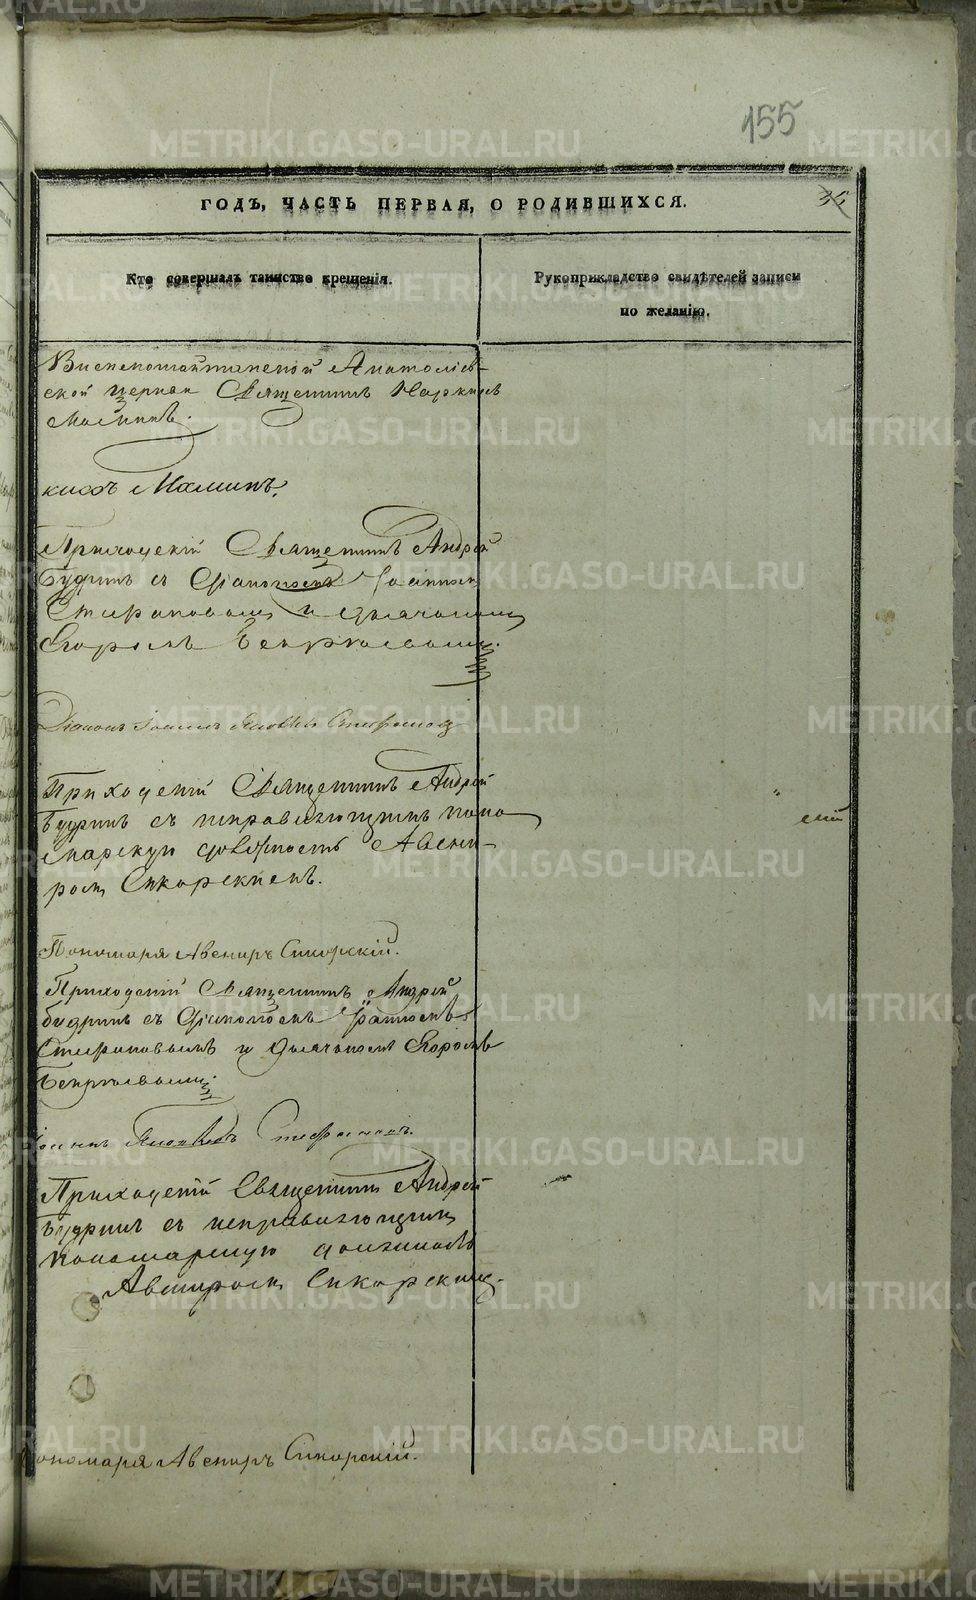 155
ГОДЪ, ЧАСТЬ ПЕРВАЯ, О РОДИВШИХСЯ.
35
Кто совершалъ таинство крещенія.
Рукоприкладство свидѣтелей записи
по желанію.
Анатоліев-
ской церкви Священникъ Наркисъ
Маминъ.
кисъ Маминъ.
Приходскій Священникъ Андрей
Будринъ съ Діакономъ Іоанномъ
Стефановымъ и дьячкомъ
Егоромъ
Діаконъ Іоаннъ Яковлев Стефановъ
Приходскій Священникъ Андрей
Будринъ съ исправляющимъ поно
марскую должность Авени-
ромъ Сикорскимъ.
Пономаря Авениръ Сикорскій.
Приходскій Священникъ Андрей
Будринъ съ Діакономъ Іоанномъ
Стефановымъ и дьячкомъ Егоромъ
Іоаннъ Яковлевъ Стефановъ.
Приходскій Священникъ Андрей
Будринъ съ исправляющимъ
пономарскую должность
Авениромъ Сикорскимъ.
пономаря Авениръ Сикорскій.
METRIKI.GASO-URAL.RU